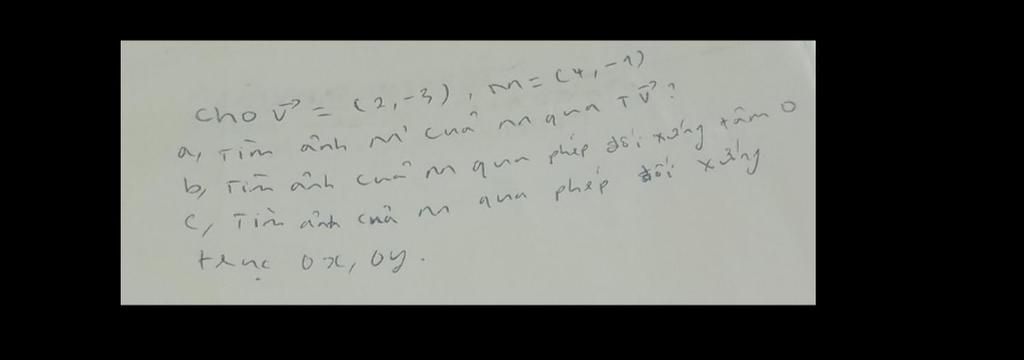 Cho v⃗ = (2,-3), M = (4,-1)
a, Tìm ảnh M' của M qua T v⃗ ?
b, Tìm ảnh của M qua phép đối xứng tâm O
c, Tìm ảnh của M qua phép đối xứng
trục Ox, Oy.